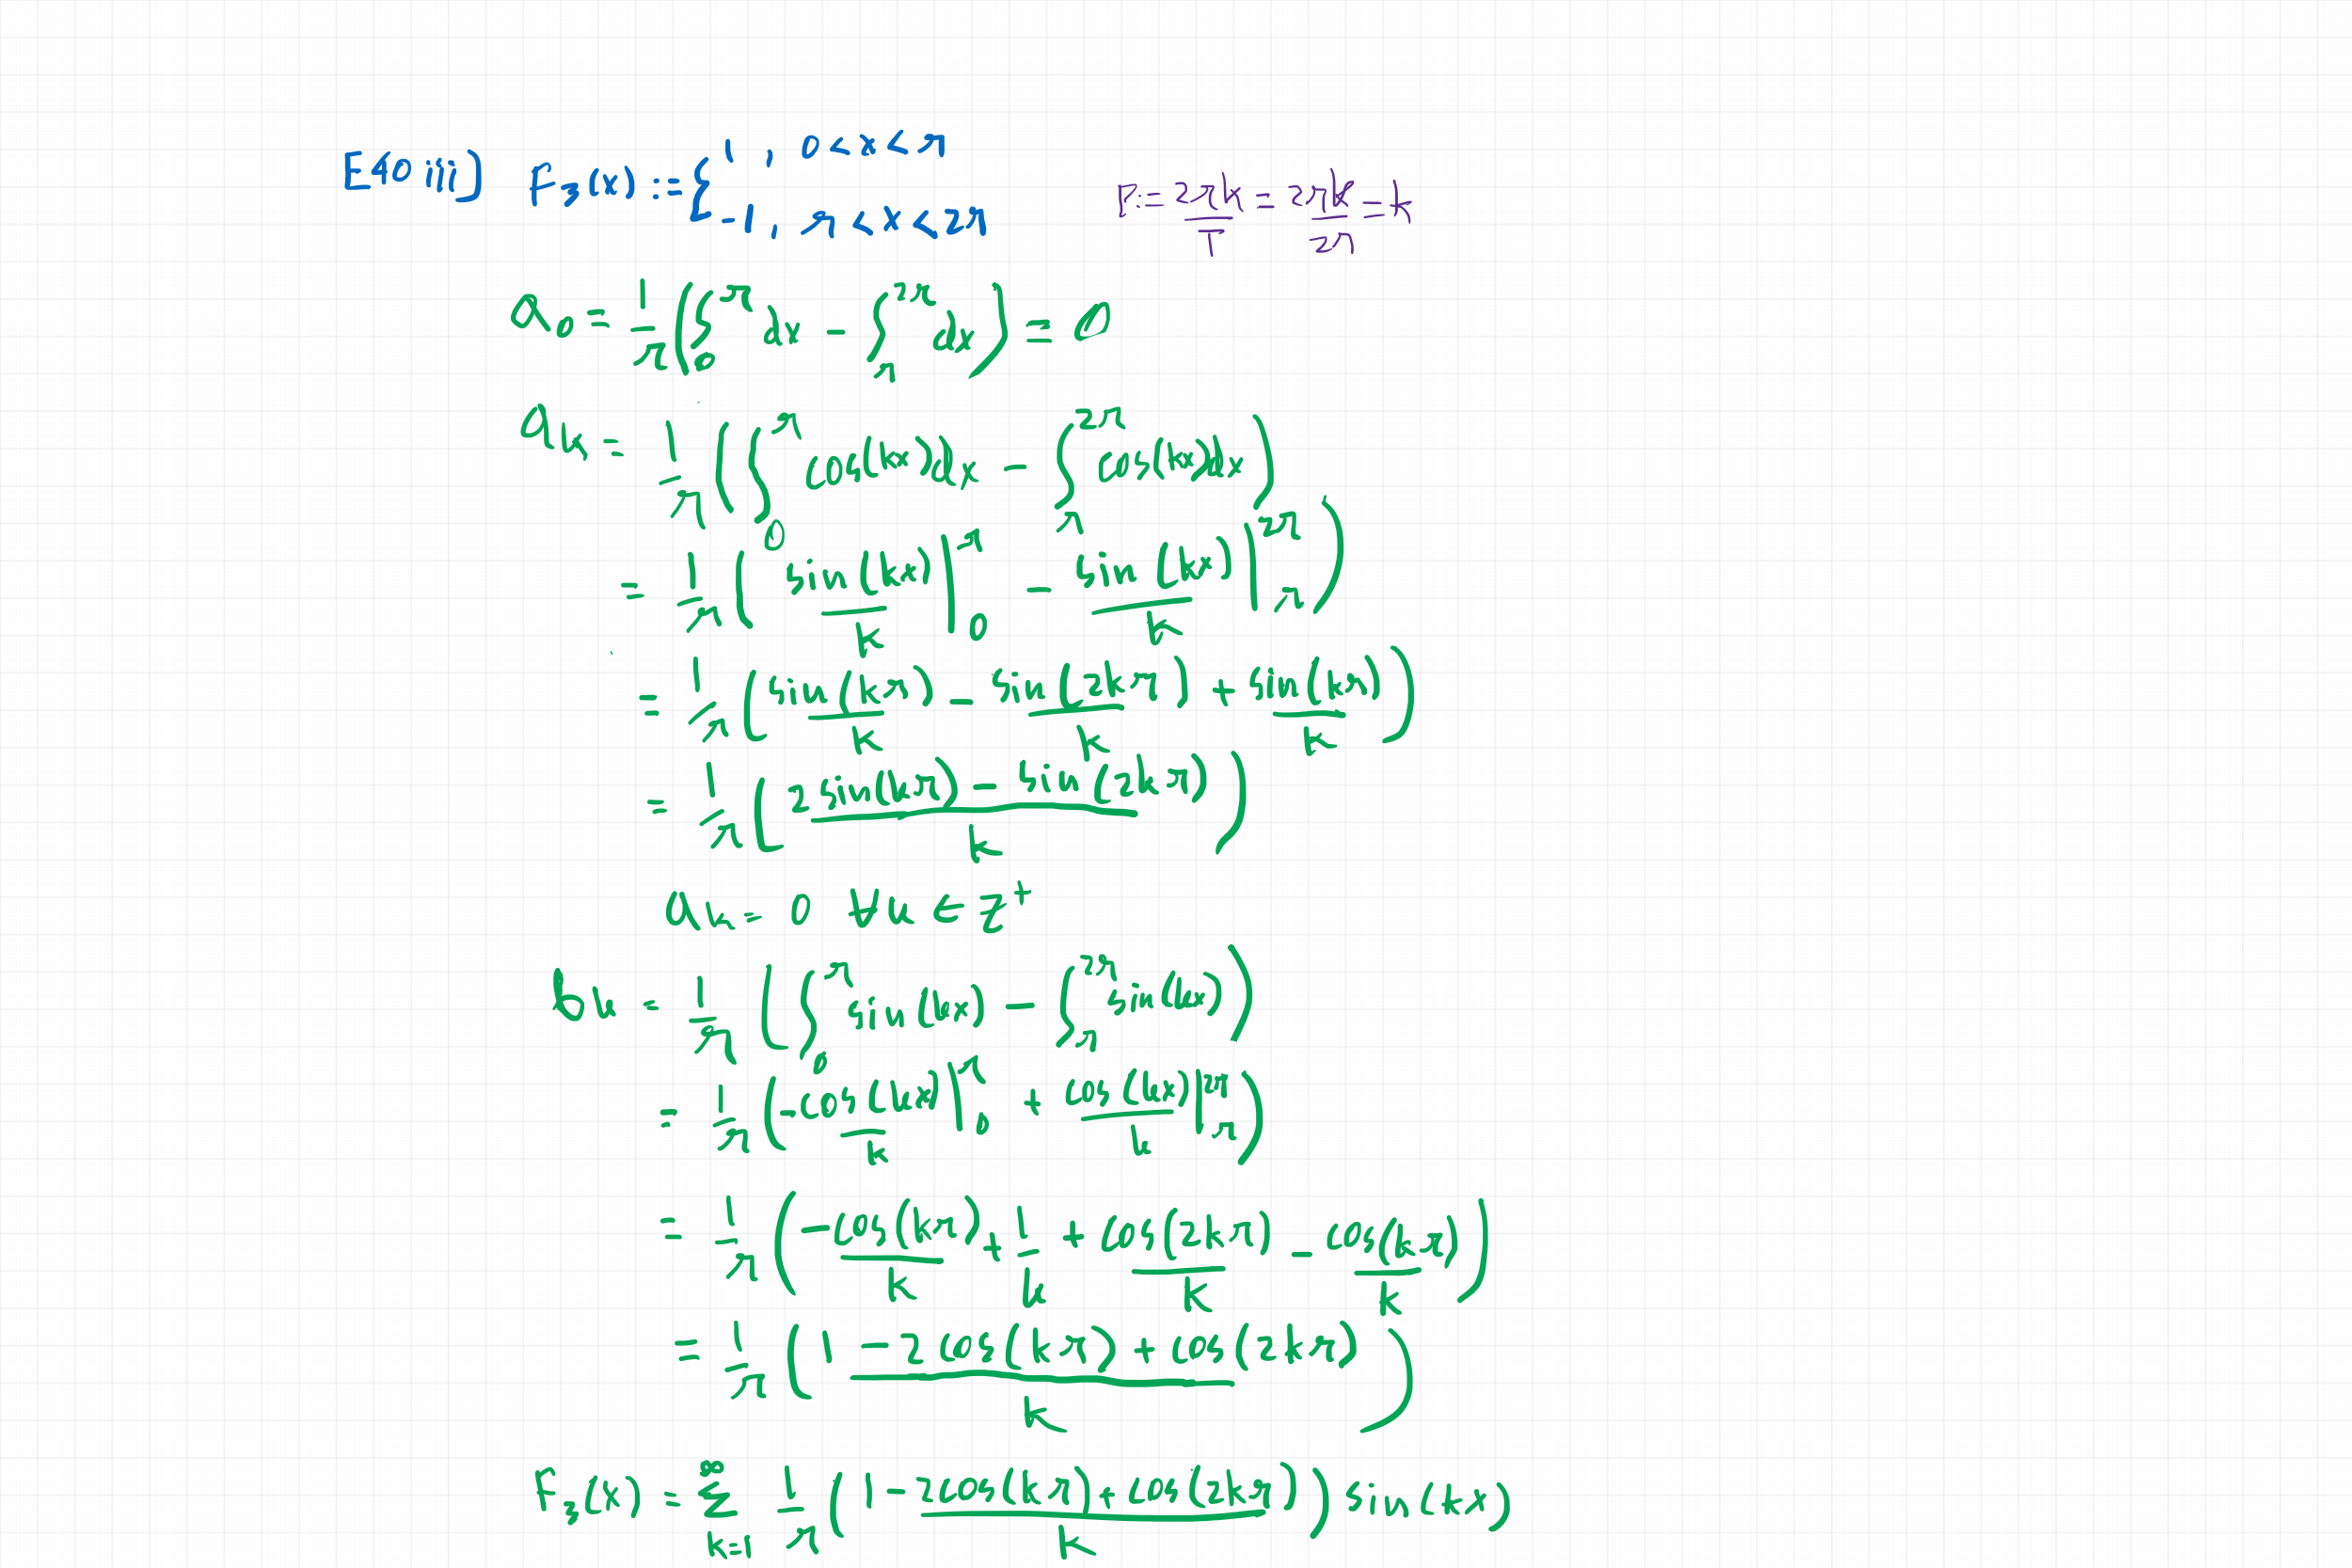 E40 iii) f₃(x) := { 1 , 0 < x < π
-1 , π < x < 2π
P := 2πk/T = 2πk/2π = k
a₀ = 1/π ( ∫₀^π dx - ∫_π^2π dx ) = 0
aₖ = 1/π ( ∫₀^π cos(kx)dx - ∫_π^2π cos(kx)dx )
= 1/π ( sin(kx)/k |₀^π - sin(kx)/k |_π^2π )
= 1/π ( sin(kπ)/k - sin(2kπ)/k + sin(kπ)/k )
= 1/π ( (2sin(kπ) - sin(2kπ))/k )
aₖ = 0 ∀k ∈ Z⁺
bₖ = 1/π ( ∫₀^π sin(kx) - ∫_π^2π sin(kx) )
= 1/π ( -cos(kx)/k |₀^π + cos(kx)/k |_π^2π )
= 1/π ( -cos(kπ)/k + 1/k + cos(2kπ)/k - cos(kπ)/k )
= 1/π ( (1 - 2cos(kπ) + cos(2kπ))/k )
f₃(x) = ∑_{k=1}^∞ 1/π ( (1 - 2cos(kπ) + cos(2kπ))/k ) sin(kx)